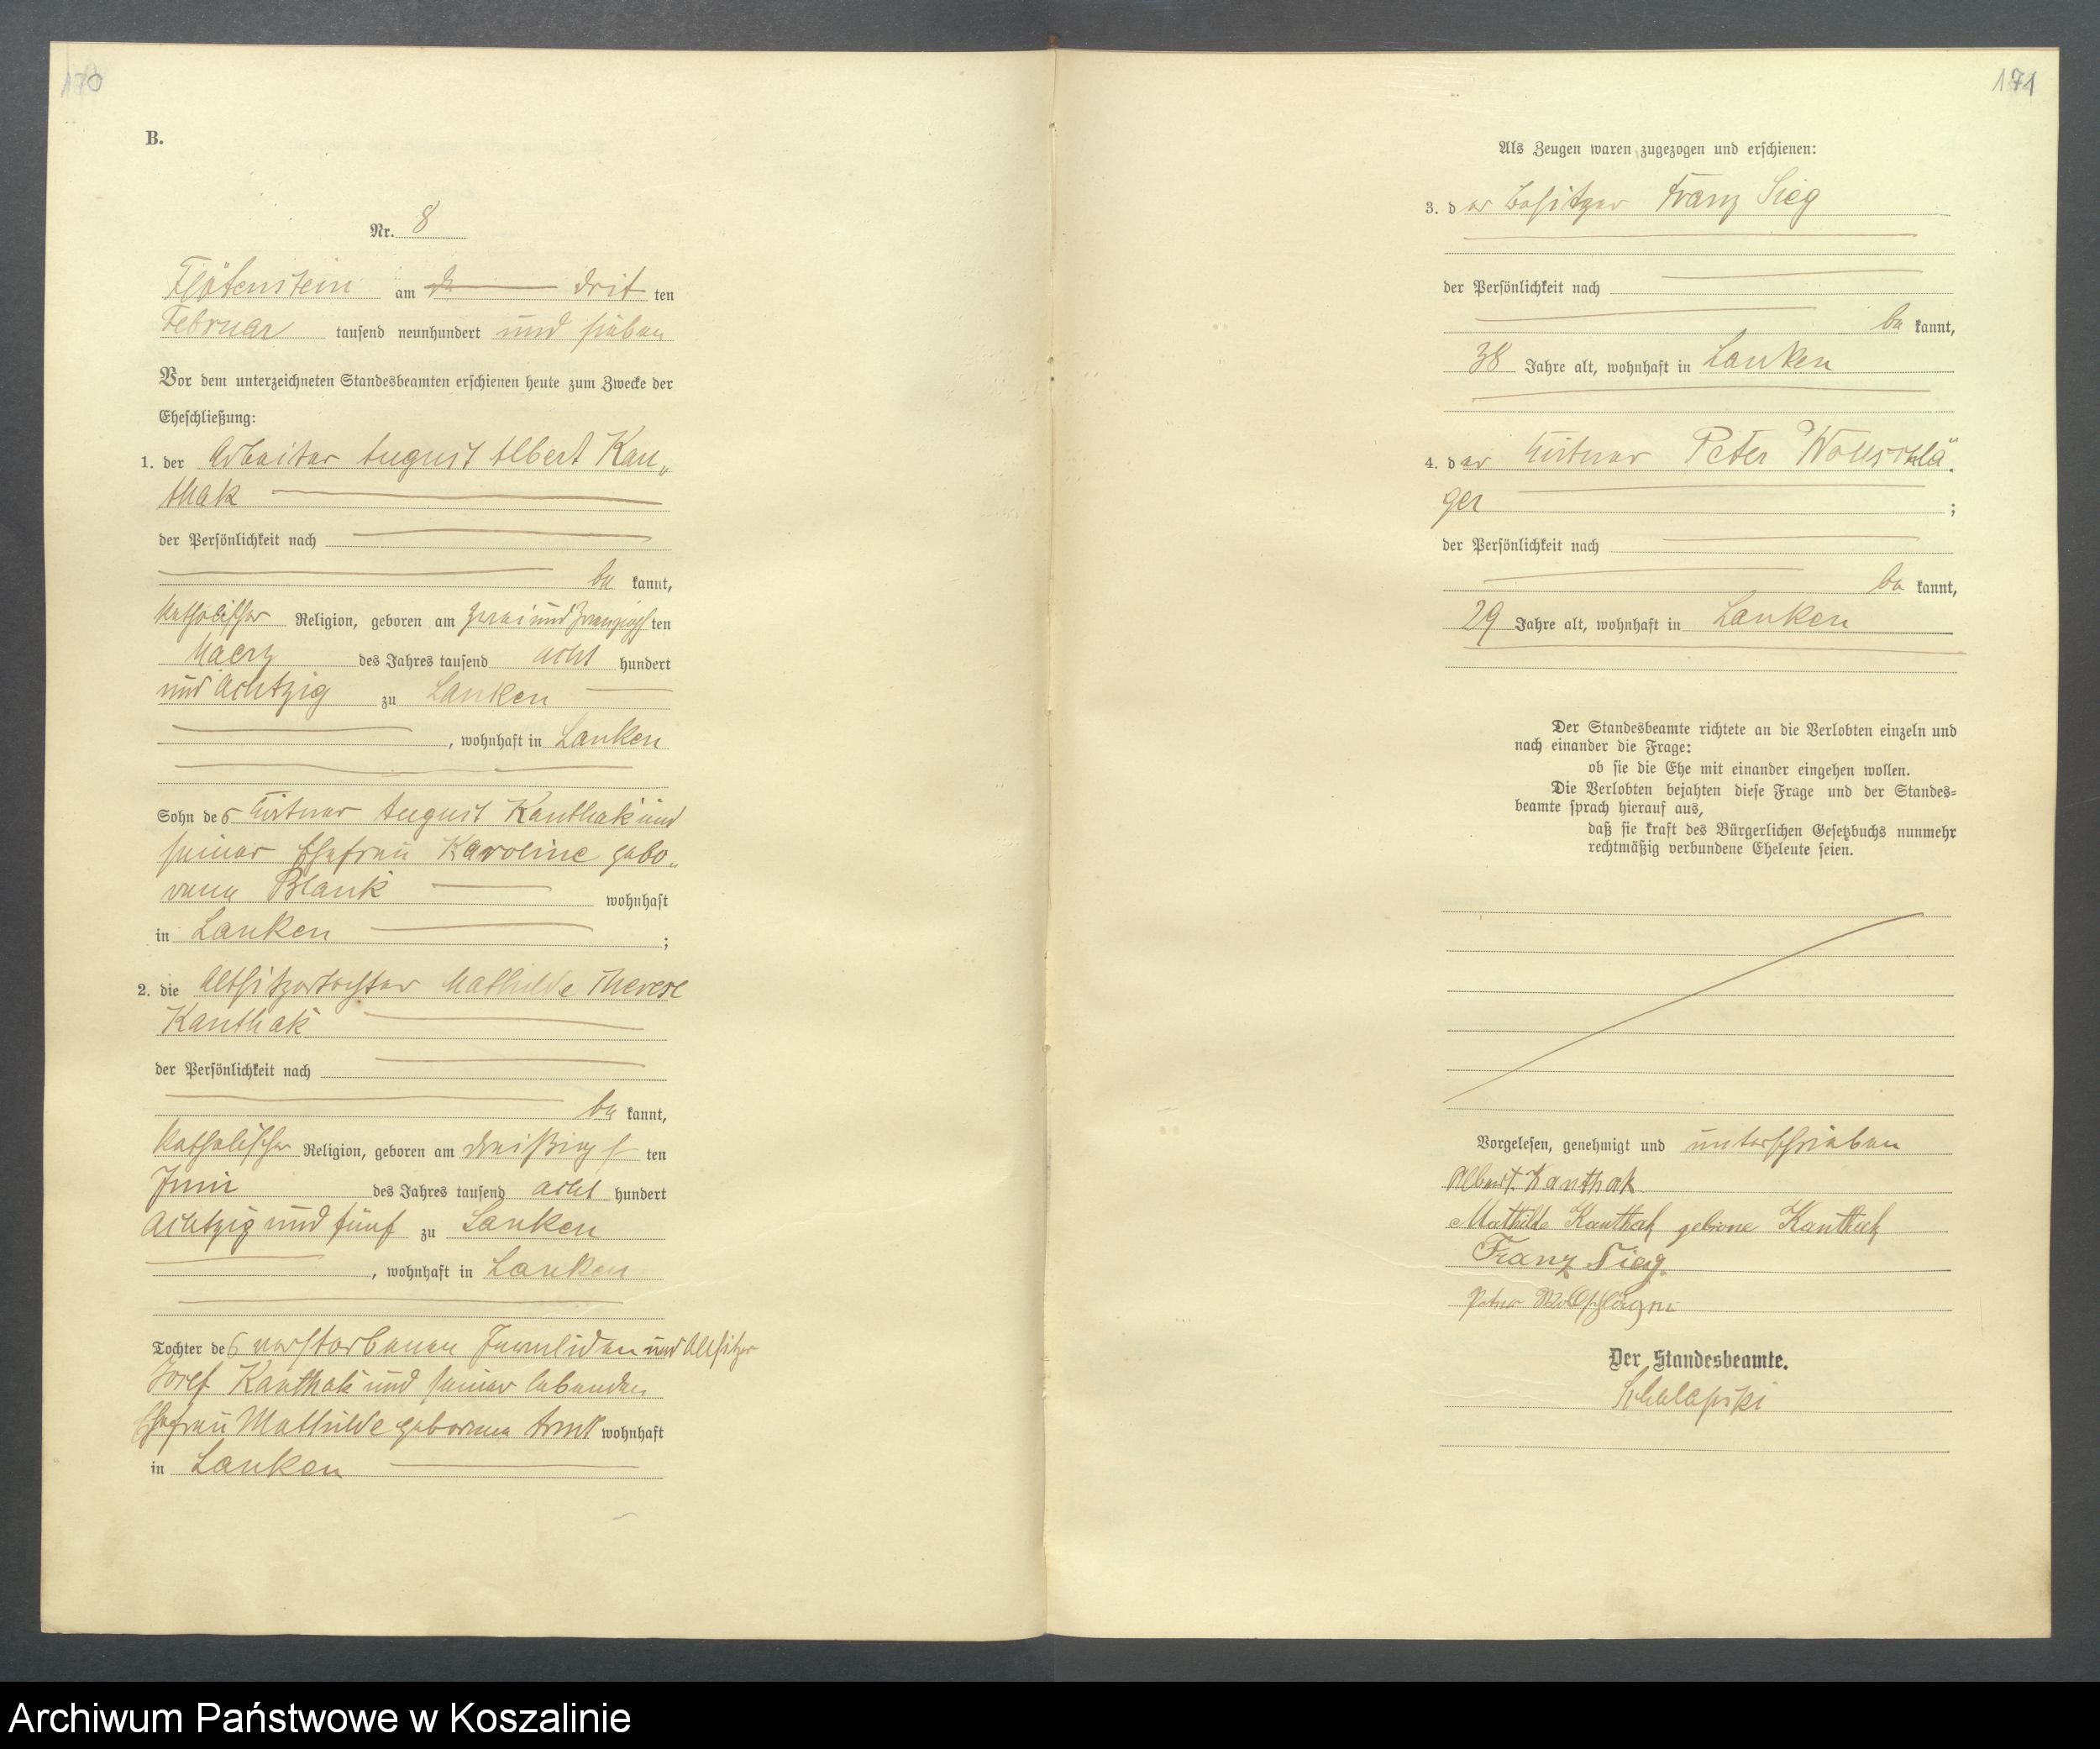 170
B.
Nr. 8
Flötenstein am drit ten
Februar tausend neunhundert und sieben
Vor dem unterzeichneten Standesbeamten erschienen heute zum Zwecke der
Eheschließung:
1. der Arbeiter August Albert Kan„
thak
der Persönlichkeit nach
be kannt,
katholischer Religion, geboren am zweiundzwanzigs ten
Maerz des Jahres tausend acht hundert
und achtzig zu Lanken
, wohnhaft in Lanken
Sohn des August Kanthak und
seiner Ehefrau Karoline gebo„
rene Blank wohnhaft
in Lanken ;
2. die Altsitzertochter Mathilde Therese
Kanthak
der Persönlichkeit nach
be kannt,
katholischer Religion, geboren am dreißigs ten
Juni des Jahres tausend acht hundert
achtzig und fünf zu Lanken
, wohnhaft in Lanken
Tochter des verstorbenen Invaliden und Altsitzer
Josef Kanthak und seiner lebenden
Ehefrau Mathilde geborene Arndt wohnhaft
in Lanken
171
Als Zeugen waren zugezogen und erschienen:
3. der Besitzer Franz Sieg
der Persönlichkeit nach
be kannt,
38 Jahre alt, wohnhaft in Lanken
4. der Peter Wollschlä„
ger ;
der Persönlichkeit nach
be kannt,
29 Jahre alt, wohnhaft in Lanken
Der Standesbeamte richtete an die Verlobten einzeln und
nach einander die Frage:
ob sie die Ehe mit einander eingehen wollen.
Die Verlobten bejahten diese Frage und der Standes=
beamte sprach hierauf aus,
daß sie kraft des Bürgerlichen Gesetzbuchs nunmehr
rechtmäßig verbundene Eheleute seien.
Vorgelesen, genehmigt und unterschrieben
Albert Kanthak
Mathilde Kanthak geborne Kanthak
Franz Sieg.
Peter Wollschläger
Der Standesbeamte.
Archiwum Państwowe w Koszalinie